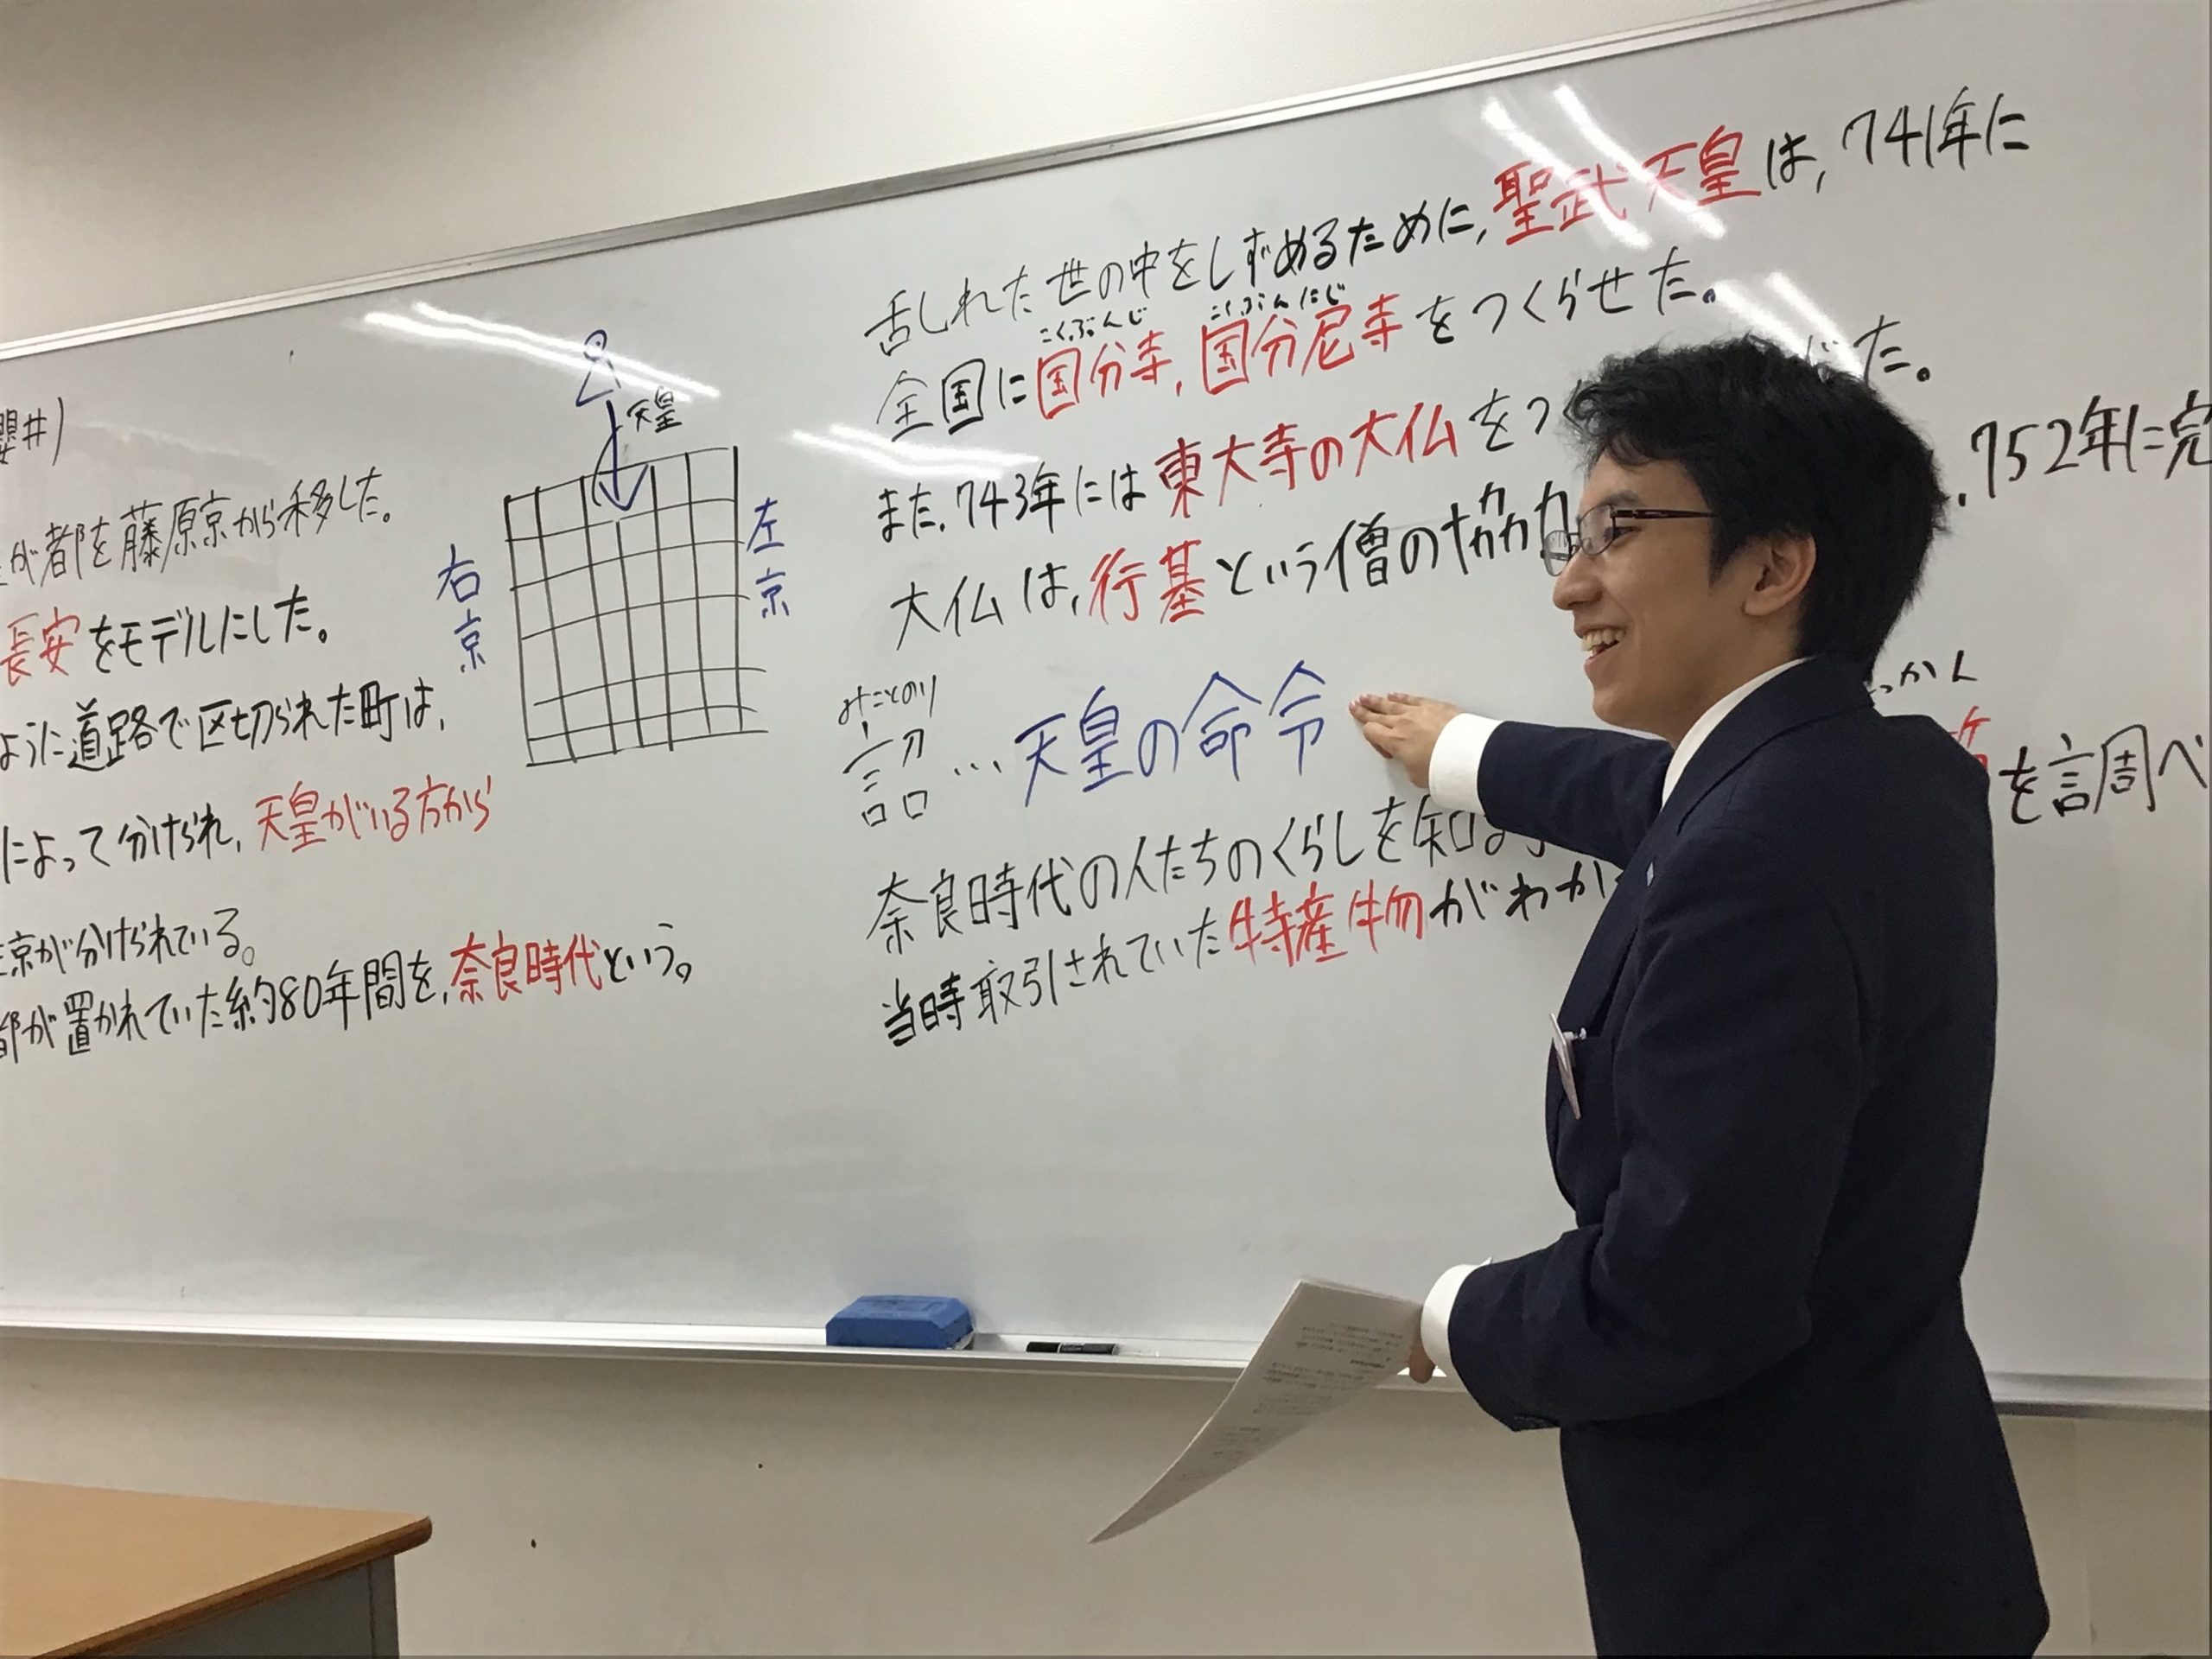 櫻井)
が都を藤原京から移した。
長安をモデルにした。
ように道路で区切られた町は、
によって分けられ、天皇がいる方から
京が分けられている。
都が置かれていた約80年間を、奈良時代という。
天皇
右京
左京
乱れた世の中をしずめるために、聖武天皇は、741年に
こくぶんじ こくぶんにじ
全国に国分寺、国分尼寺をつくらせた。
また、743年には東大寺の大仏をつ じた。
大仏は、行基という僧の協力 、752年に完
みことのり
詔…天皇の命令
っかん
奈良時代の人たちのくらしを知 を調べ
当時取引されていた特産物がわか